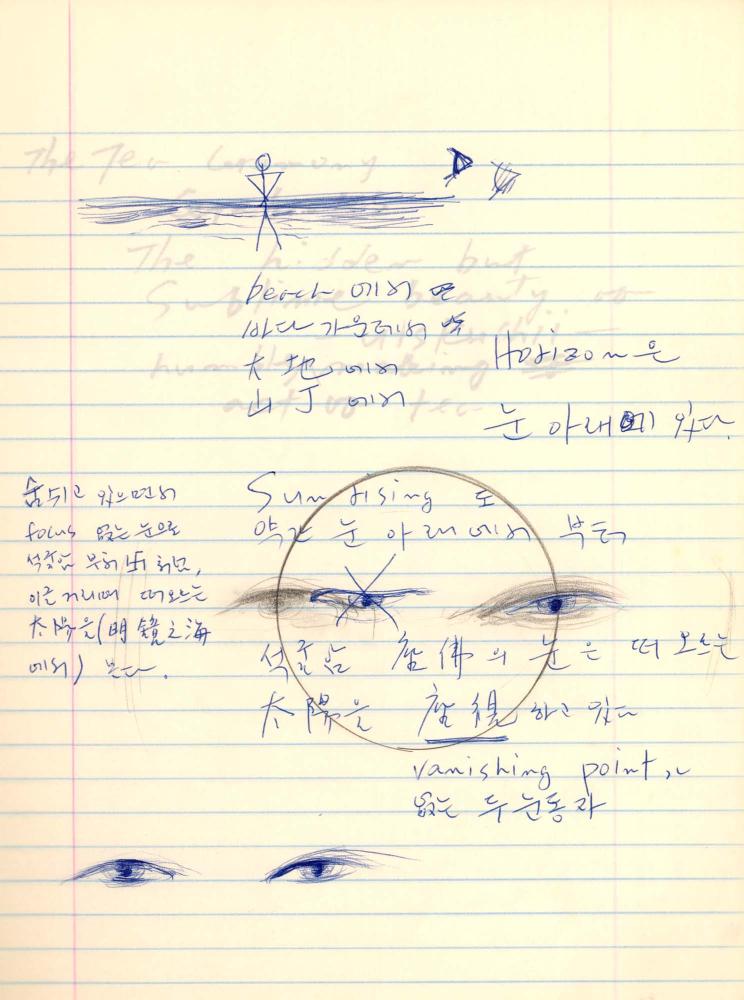 beach 에서
바다 가운데서
大地 에서
山丁 에서
Horizon은
눈 아래에 있다.
숨쉬고 있으면서
focus 없는 눈으로
석굴암 부처 卍 처럼,
떠오르는
太陽을 (明鏡之海
에서) 본다.
Sun rising 도
약간 눈 아래에서 부터
석굴암 座佛의 눈은 떠 오르는
太陽을 座視하고 있다
vanishing point,
없는 두 눈동자
The Tea Ceremony
The hidden but
Sublime beauty